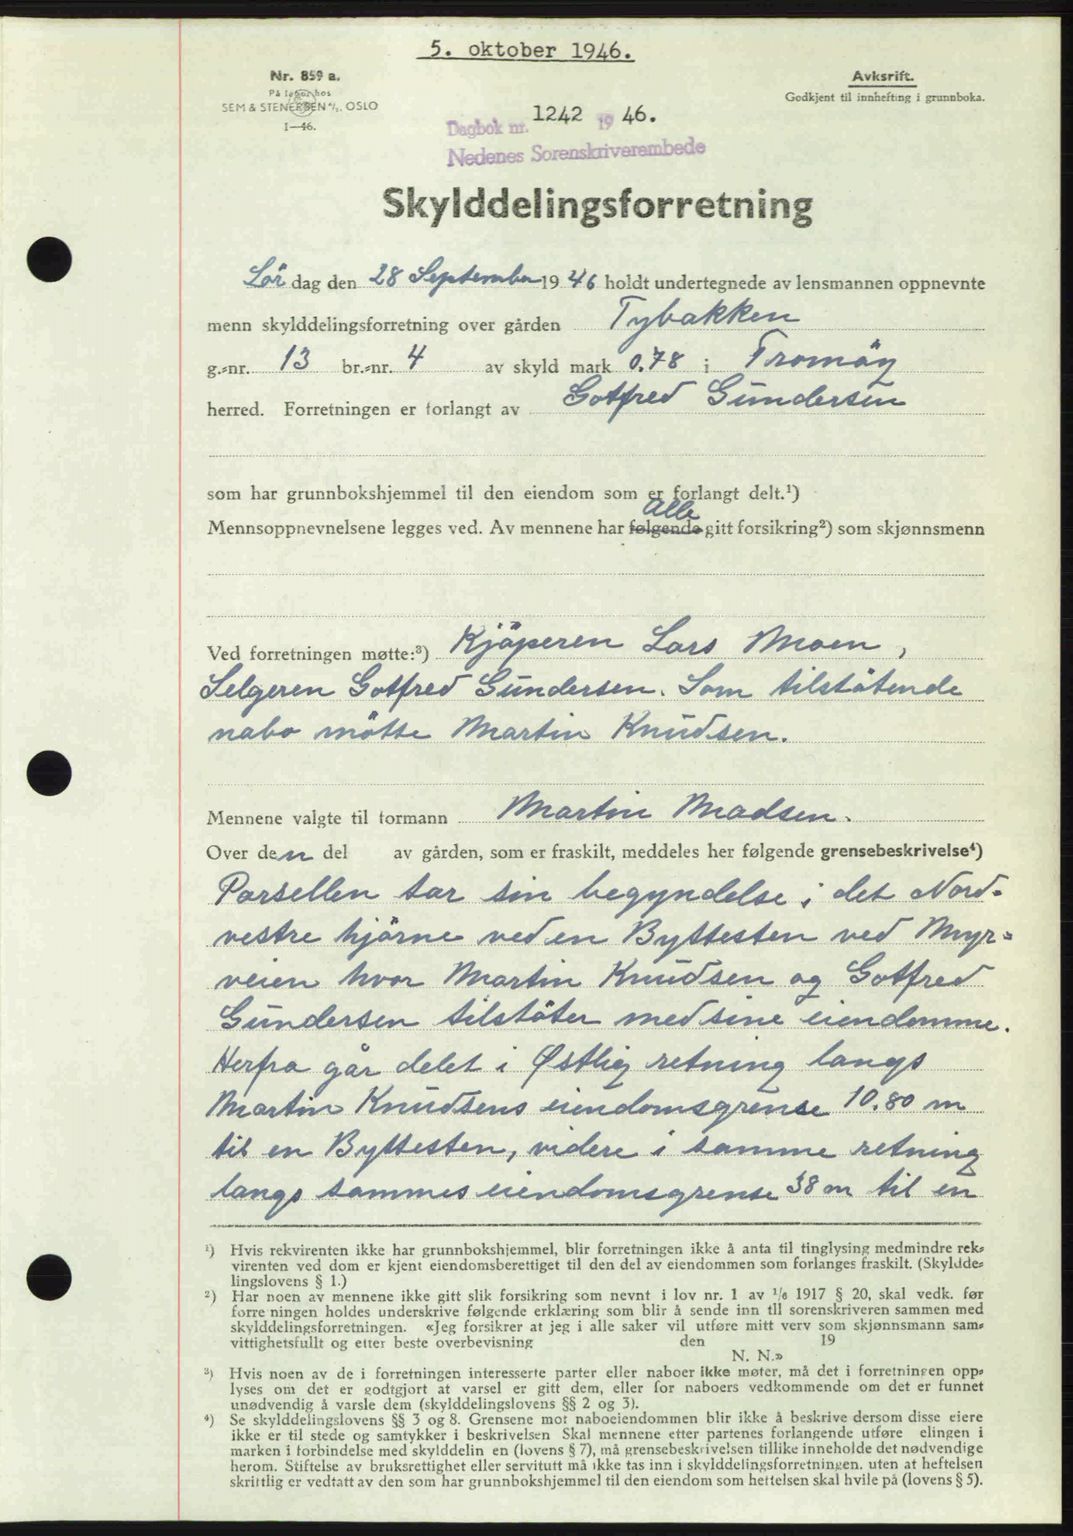 5. oktober 1946.
Nr. 859 a.
På lager hos
SEM & STENERSEN A/S. OSLO
1—46.
Avkskrift.
Godkjent til innhefting i grunnboka.
Dagbok nr. 1242 19 46.
Nedenes Sorenskriverembede
Skylddelingsforretning
Lör dag den 28 September 19 46 holdt undertegnede av lensmannen oppnevnte
menn skylddelingsforretning over gården Tybakken
g.-nr. 13 br.-nr. 4 av skyld mark 0.78 i Tromöy
herred. Forretningen er forlangt av Gotfred Gundersen
som har grunnbokshjemmel til den eiendom som er forlangt delt.¹)
alle
Mennsoppnevnelsene legges ved. Av mennene har følgende gitt forsikring²) som skjønnsmenn
Ved forretningen møtte:³) Kjöperen Lars Moen,
Selgeren Gotfred Gundersen. Som tilstötende
nabo mötte Martin Knudsen.
Mennene valgte til formann Martin Madsen.
Over den del av gården, som er fraskilt, meddeles her følgende grensebeskrivelse⁴)
Parsellen tar sin begyndelse i det Nord-
vestre hjörne ved en Byttesten ved Myr-
veien hvor Martin Knudsen og Gotfred
Gundersen tilstöter med sine eiendomme.
Herfra går delet i Østlig retning langs
Martin Knudsens eiendomsgrense 10.80 m
til en Byttesten, videre i samme retning
langs sammes eiendomsgrense 38 m til en
¹) Hvis rekvirenten ikke har grunnbokshjemmel, blir forretningen ikke å anta til tinglysing medmindre rek-
virenten ved dom er kjent eiendomsberettiget til den del av eiendommen som forlanges fraskilt. (Skyldde-
lingslovens § 1.)
²) Har noen av mennene ikke gitt slik forsikring som nevnt i lov nr. 1 av 1/6 1917 § 20, skal vedk. før
forretningen holdes underskrive følgende erklæring som blir å sende inn til sorenskriveren sammen med
skylddelingsforretningen. «Jeg forsikrer at jeg i alle saker vil utføre mitt verv som skjønnsmann sam-
vittighetsfullt og etter beste overbevisning den 19
N. N.»
³) Hvis noen av de i forretningen interesserte parter eller naboer ikke møter, må det i forretningen opp-
lyses om det er godtgjort at varsel er gitt dem, eller for naboers vedkommende om det er funnet
unødvendig å varsle dem (skylddelingslovens §§ 2 og 3).
⁴) Se skylddelingslovens §§ 3 og 8. Grensene mot naboeiendommen blir ikke å beskrive dersom disse eiere
ikke er til stede og samtykker i beskrivelsen Skal mennene etter partenes forlangende utføre elingen i
marken i forbindelse med skylddelin en (lovens § 7), må grensebeskrivelsen tillike inneholde det nødvendige
herom. Stiftelse av bruksrettighet eller servitutt må ikke tas inn i skylddelingsforretningen. uten at heftelsen
skriftlig er vedtatt av den som har grunnbokshjemmel til den eiendom som heftelsen skal hvile på (lovens § 5).